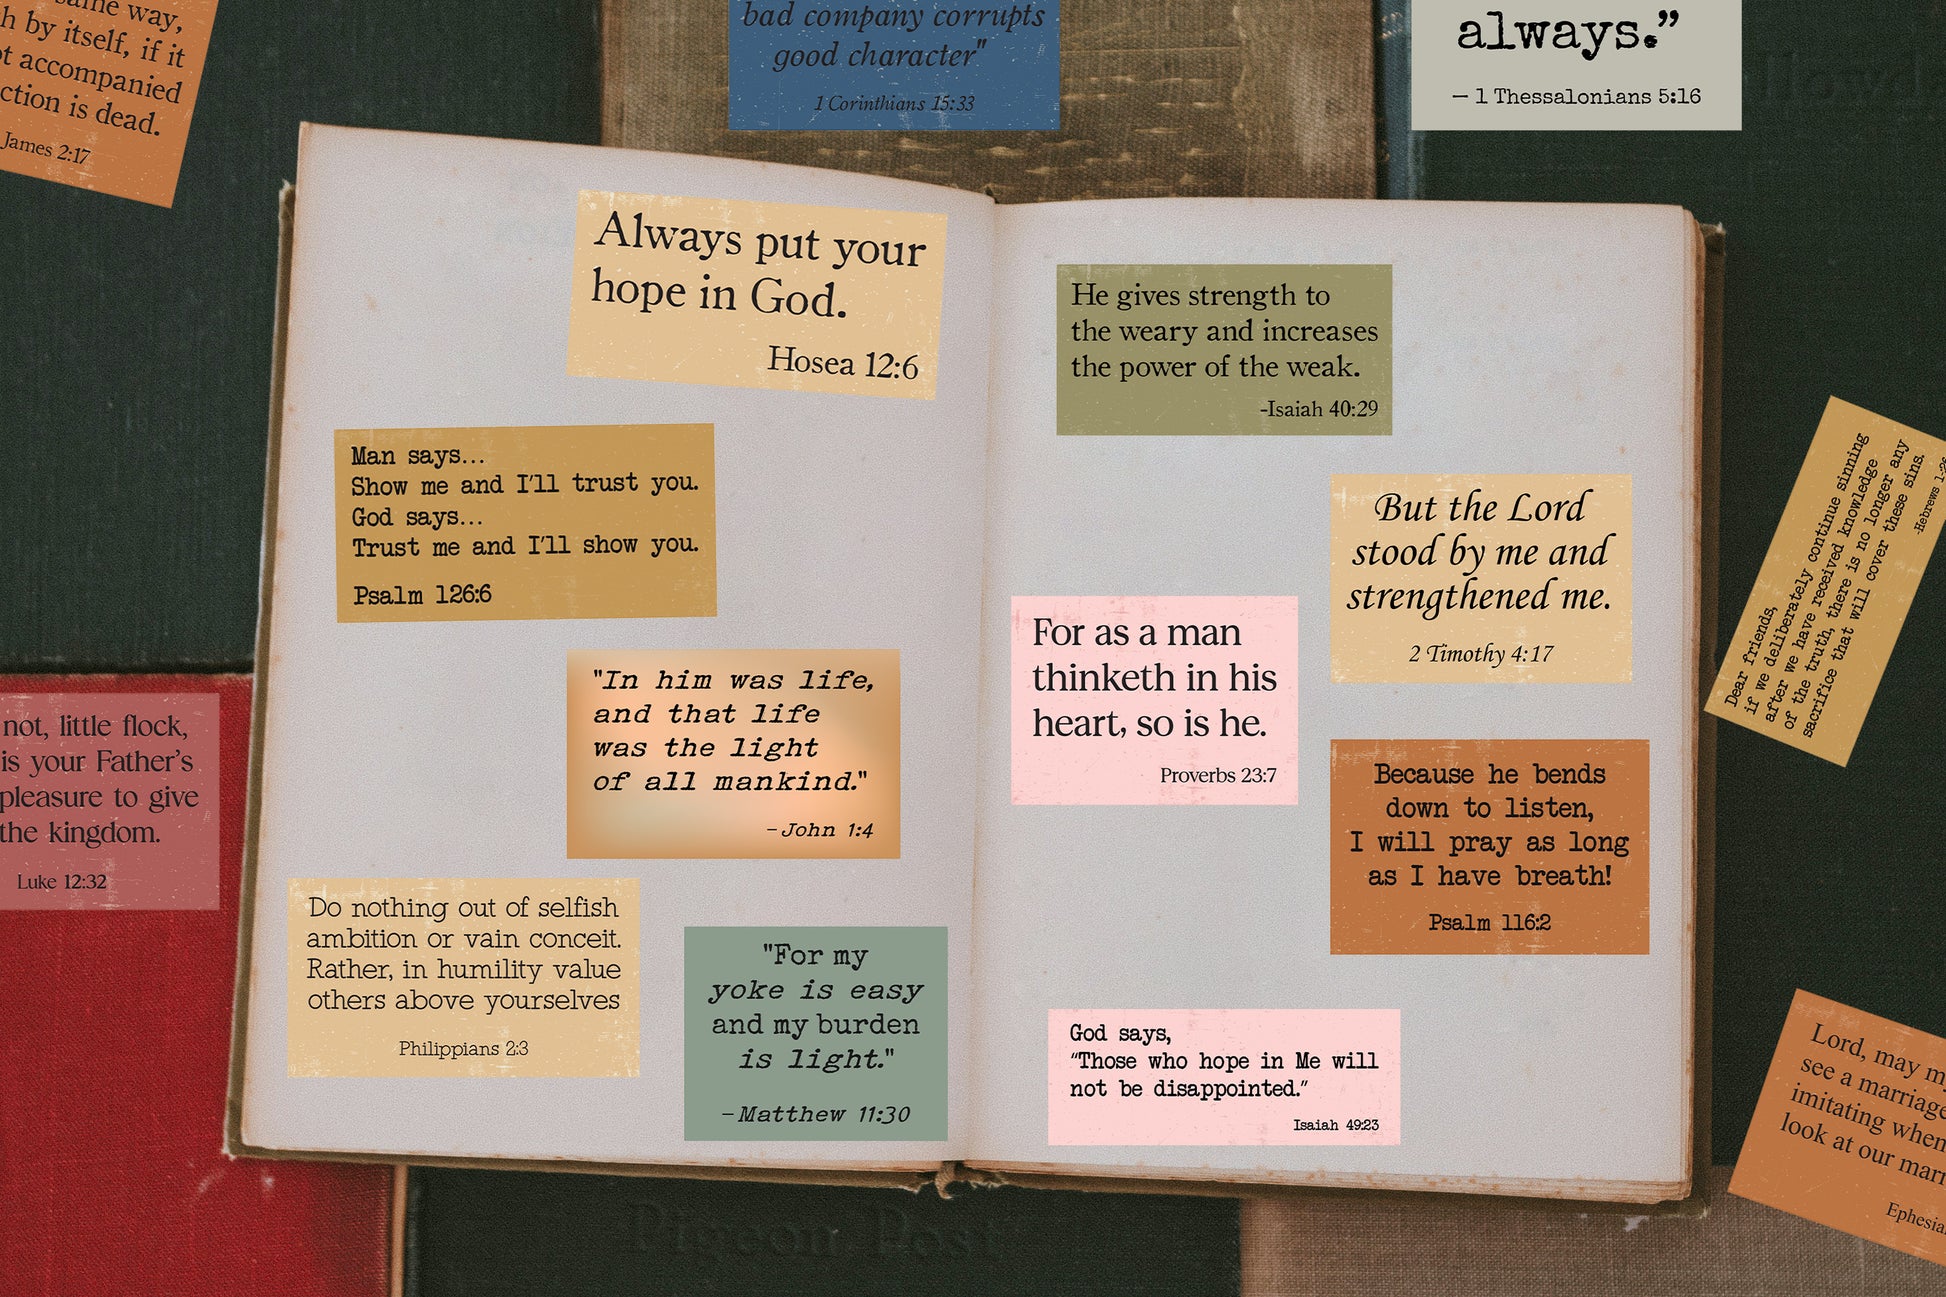 same way,
by itself, if it
accompanied
is dead.
James 2:17
bad company corrupts
good character"
1 Corinthians 15:33
always.”
— 1 Thessalonians 5:16
Always put your
hope in God.
Hosea 12:6
Man says...
Show me and I'll trust you.
God says...
Trust me and I'll show you.
Psalm 126:6
"In him was life,
and that life
was the light
of all mankind."
—John 1:4
Do nothing out of selfish
ambition or vain conceit.
Rather, in humility value
others above yourselves
Philippians 2:3
"For my
yoke is easy
and my burden
is light."
—Matthew 11:30
He gives strength to
the weary and increases
the power of the weak.
-Isaiah 40:29
But the Lord
stood by me and
strengthened me.
2 Timothy 4:17
For as a man
thinketh in his
heart, so is he.
Proverbs 23:7
Because he bends
down to listen,
I will pray as long
as I have breath!
Psalm 116:2
God says,
“Those who hope in Me will
not be disappointed.”
Isaiah 49:23
not, little flock,
is your Father’s
pleasure to give
the kingdom.
Luke 12:32
Dear friends,
if we deliberately continue sinning
after we have received knowledge
of the truth, there is no longer any
sacrifice that will cover these sins.
-Hebrews 1:26
Lord, may
see a marriage
imitating when
look at our
Pigeon Post